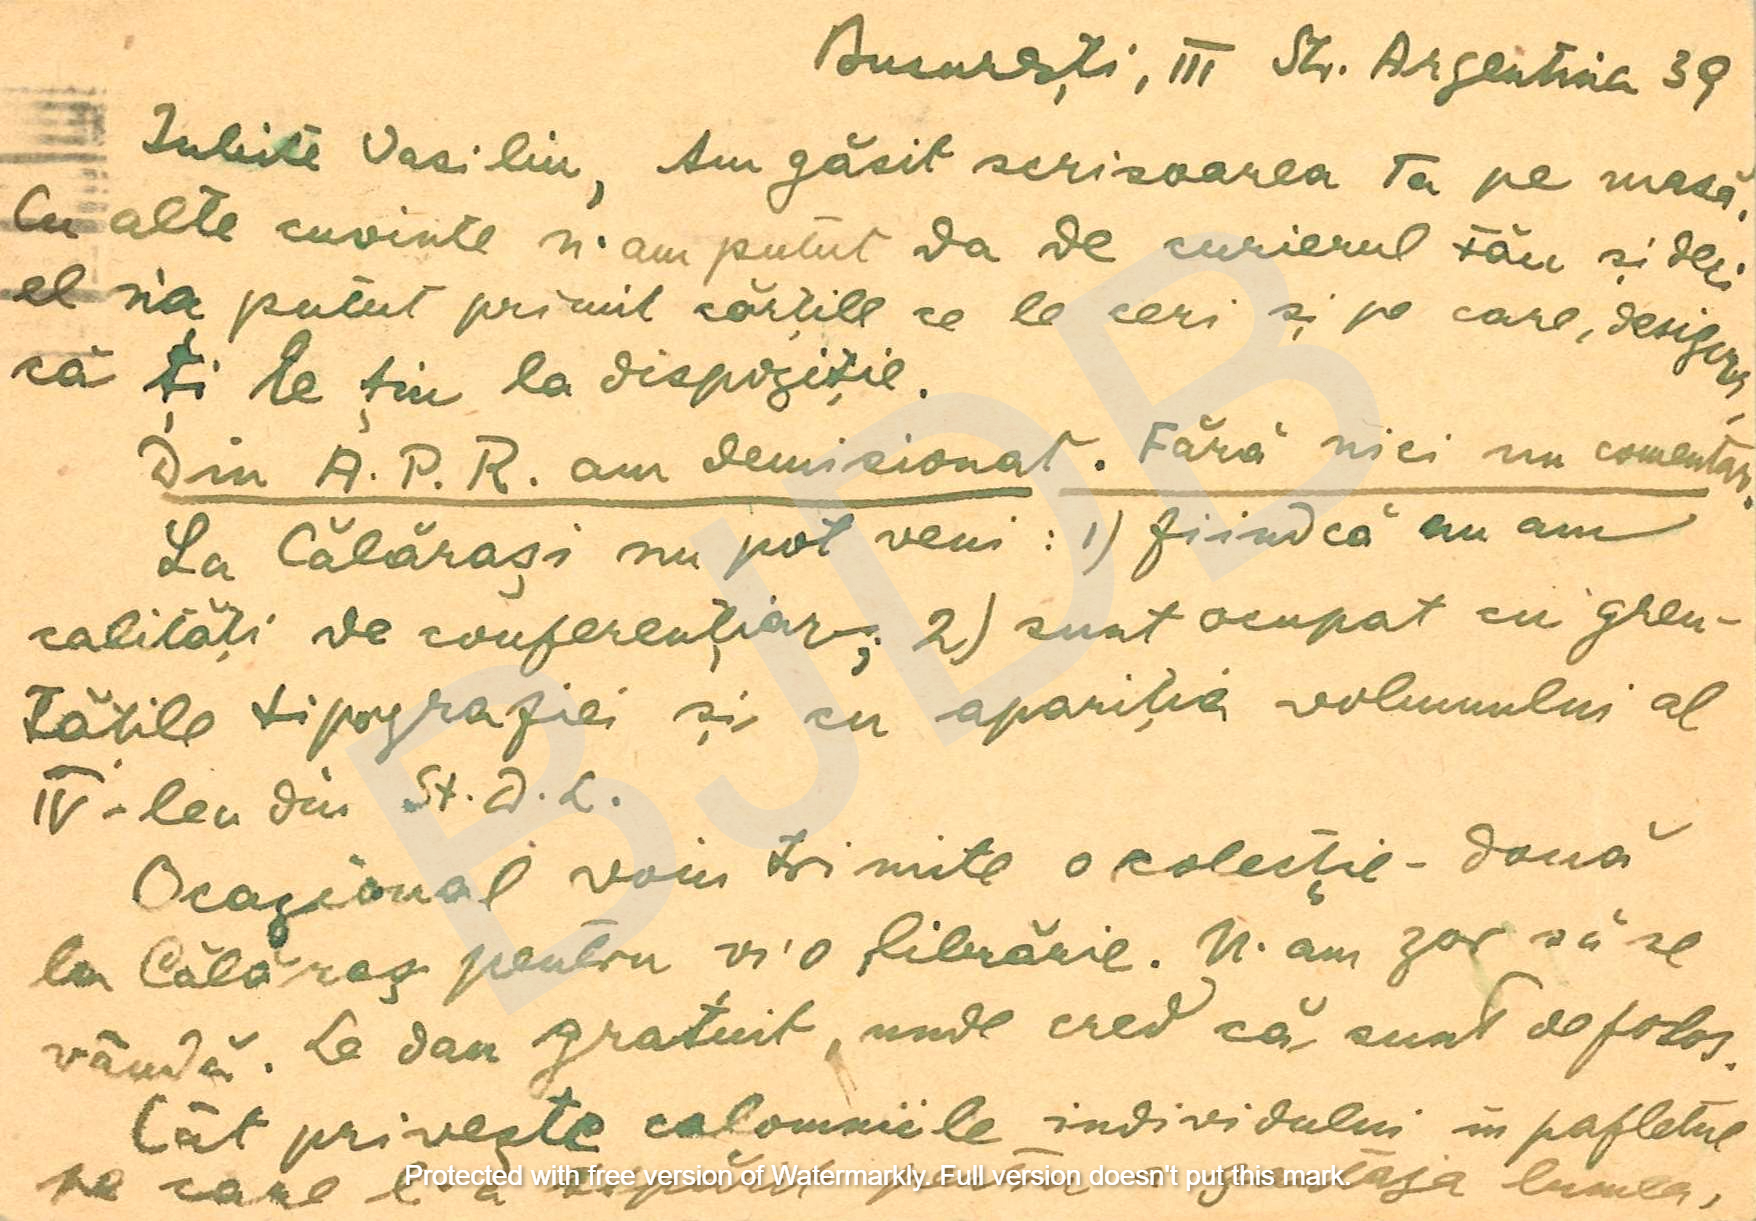 București, III Str. Argentina 39
Iubite Vasiliu, Am găsit scrisoarea ta pe masă.
Cu alte cuvinte n'am putut da de curierul tău și deci
el n'a putut primit cărțile ce le ceri și pe care, desigur,
că ți le țin la dispoziție.
Din A.P.R. am demisionat. Fără nici un comentar.
La Călărași nu pot veni: 1) fiindcă nu am
calități de conferențiar; 2) sunt ocupat cu greu-
tățile tipografiei și cu apariția volumului al
IV-lea din St.D.L.
Ocazional voiu trimite o colecție-două
la Călărași pentru vr'o librărie. N'am zor să se
vândă. Le dau gratuit, unde cred că sunt de folos.
Cât privește calomniile individului in pafletul
pe care l-a lumea,
BJDB
Protected with free version of Watermarkly. Full version doesn't put this mark.